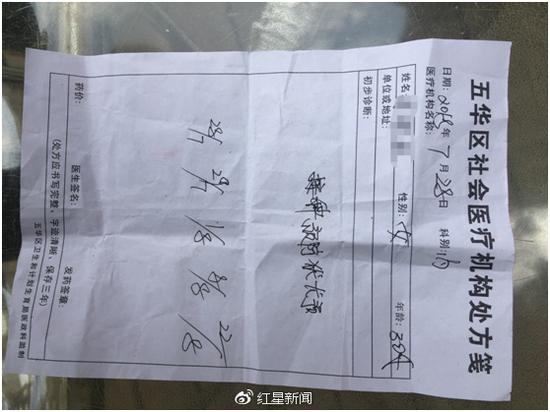 五华区社会医疗机构处方笺
日期: 2018年7月28日 科别: 内
医疗机构名称:
姓名: 性别: 女 年龄:
单位或地址:
初步诊断:
28/7 29/7 1/8 8/8 22/8
药价: 医生签名: 发药签章:
(处方应书写完整、字迹清晰、保存三年)
五华区卫生和计划生育局医政科监制
红星新闻